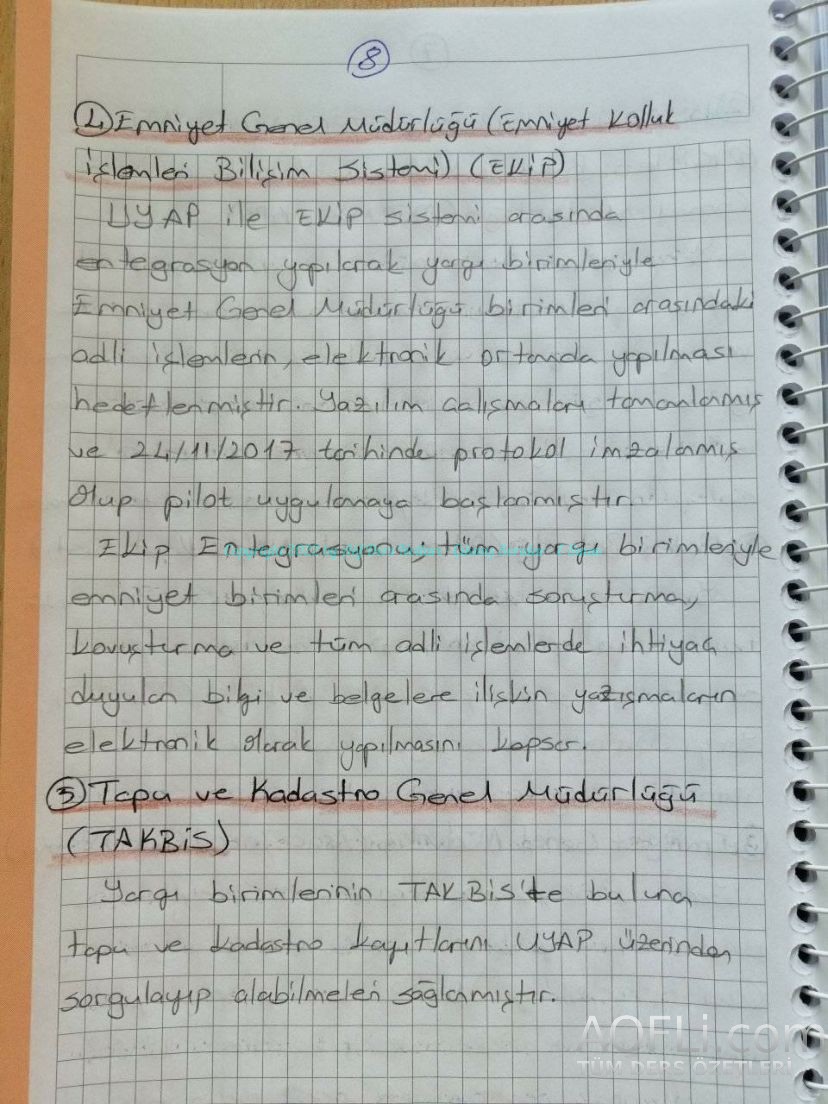 8
4 Emniyet Genel Müdürlüğü (Emniyet Kolluk
İşlemleri Bilişim Sistemi) (EKİP)
UYAP ile EKİP sistemi arasında
entegrasyon yapılarak yargı birimleriyle
Emniyet Genel Müdürlüğü birimleri arasındaki
adli işlemlerin, elektronik ortamda yapılması
hedeflenmiştir. Yazılım çalışmaları tamamlanmış
ve 24/11/2017 tarihinde protokol imzalanmış
olup pilot uygulamaya başlanmıştır.
Ekip Entegrasyonu; tüm yargı birimleriyle
emniyet birimleri arasında soruşturma,
kovuşturma ve tüm adli işlemlerde ihtiyaç
duyulan bilgi ve belgelere ilişkin yazışmaların
elektronik olarak yapılmasını kapsar.
5 Tapu ve Kadastro Genel Müdürlüğü
(TAKBİS)
Yargı birimlerinin TAKBİS'te bulunan
tapu ve kadastro kayıtlarını UYAP üzerinden
sorgulayıp alabilmeleri sağlanmıştır.
AOFLi.com
TÜM DERS ÖZETLERİ